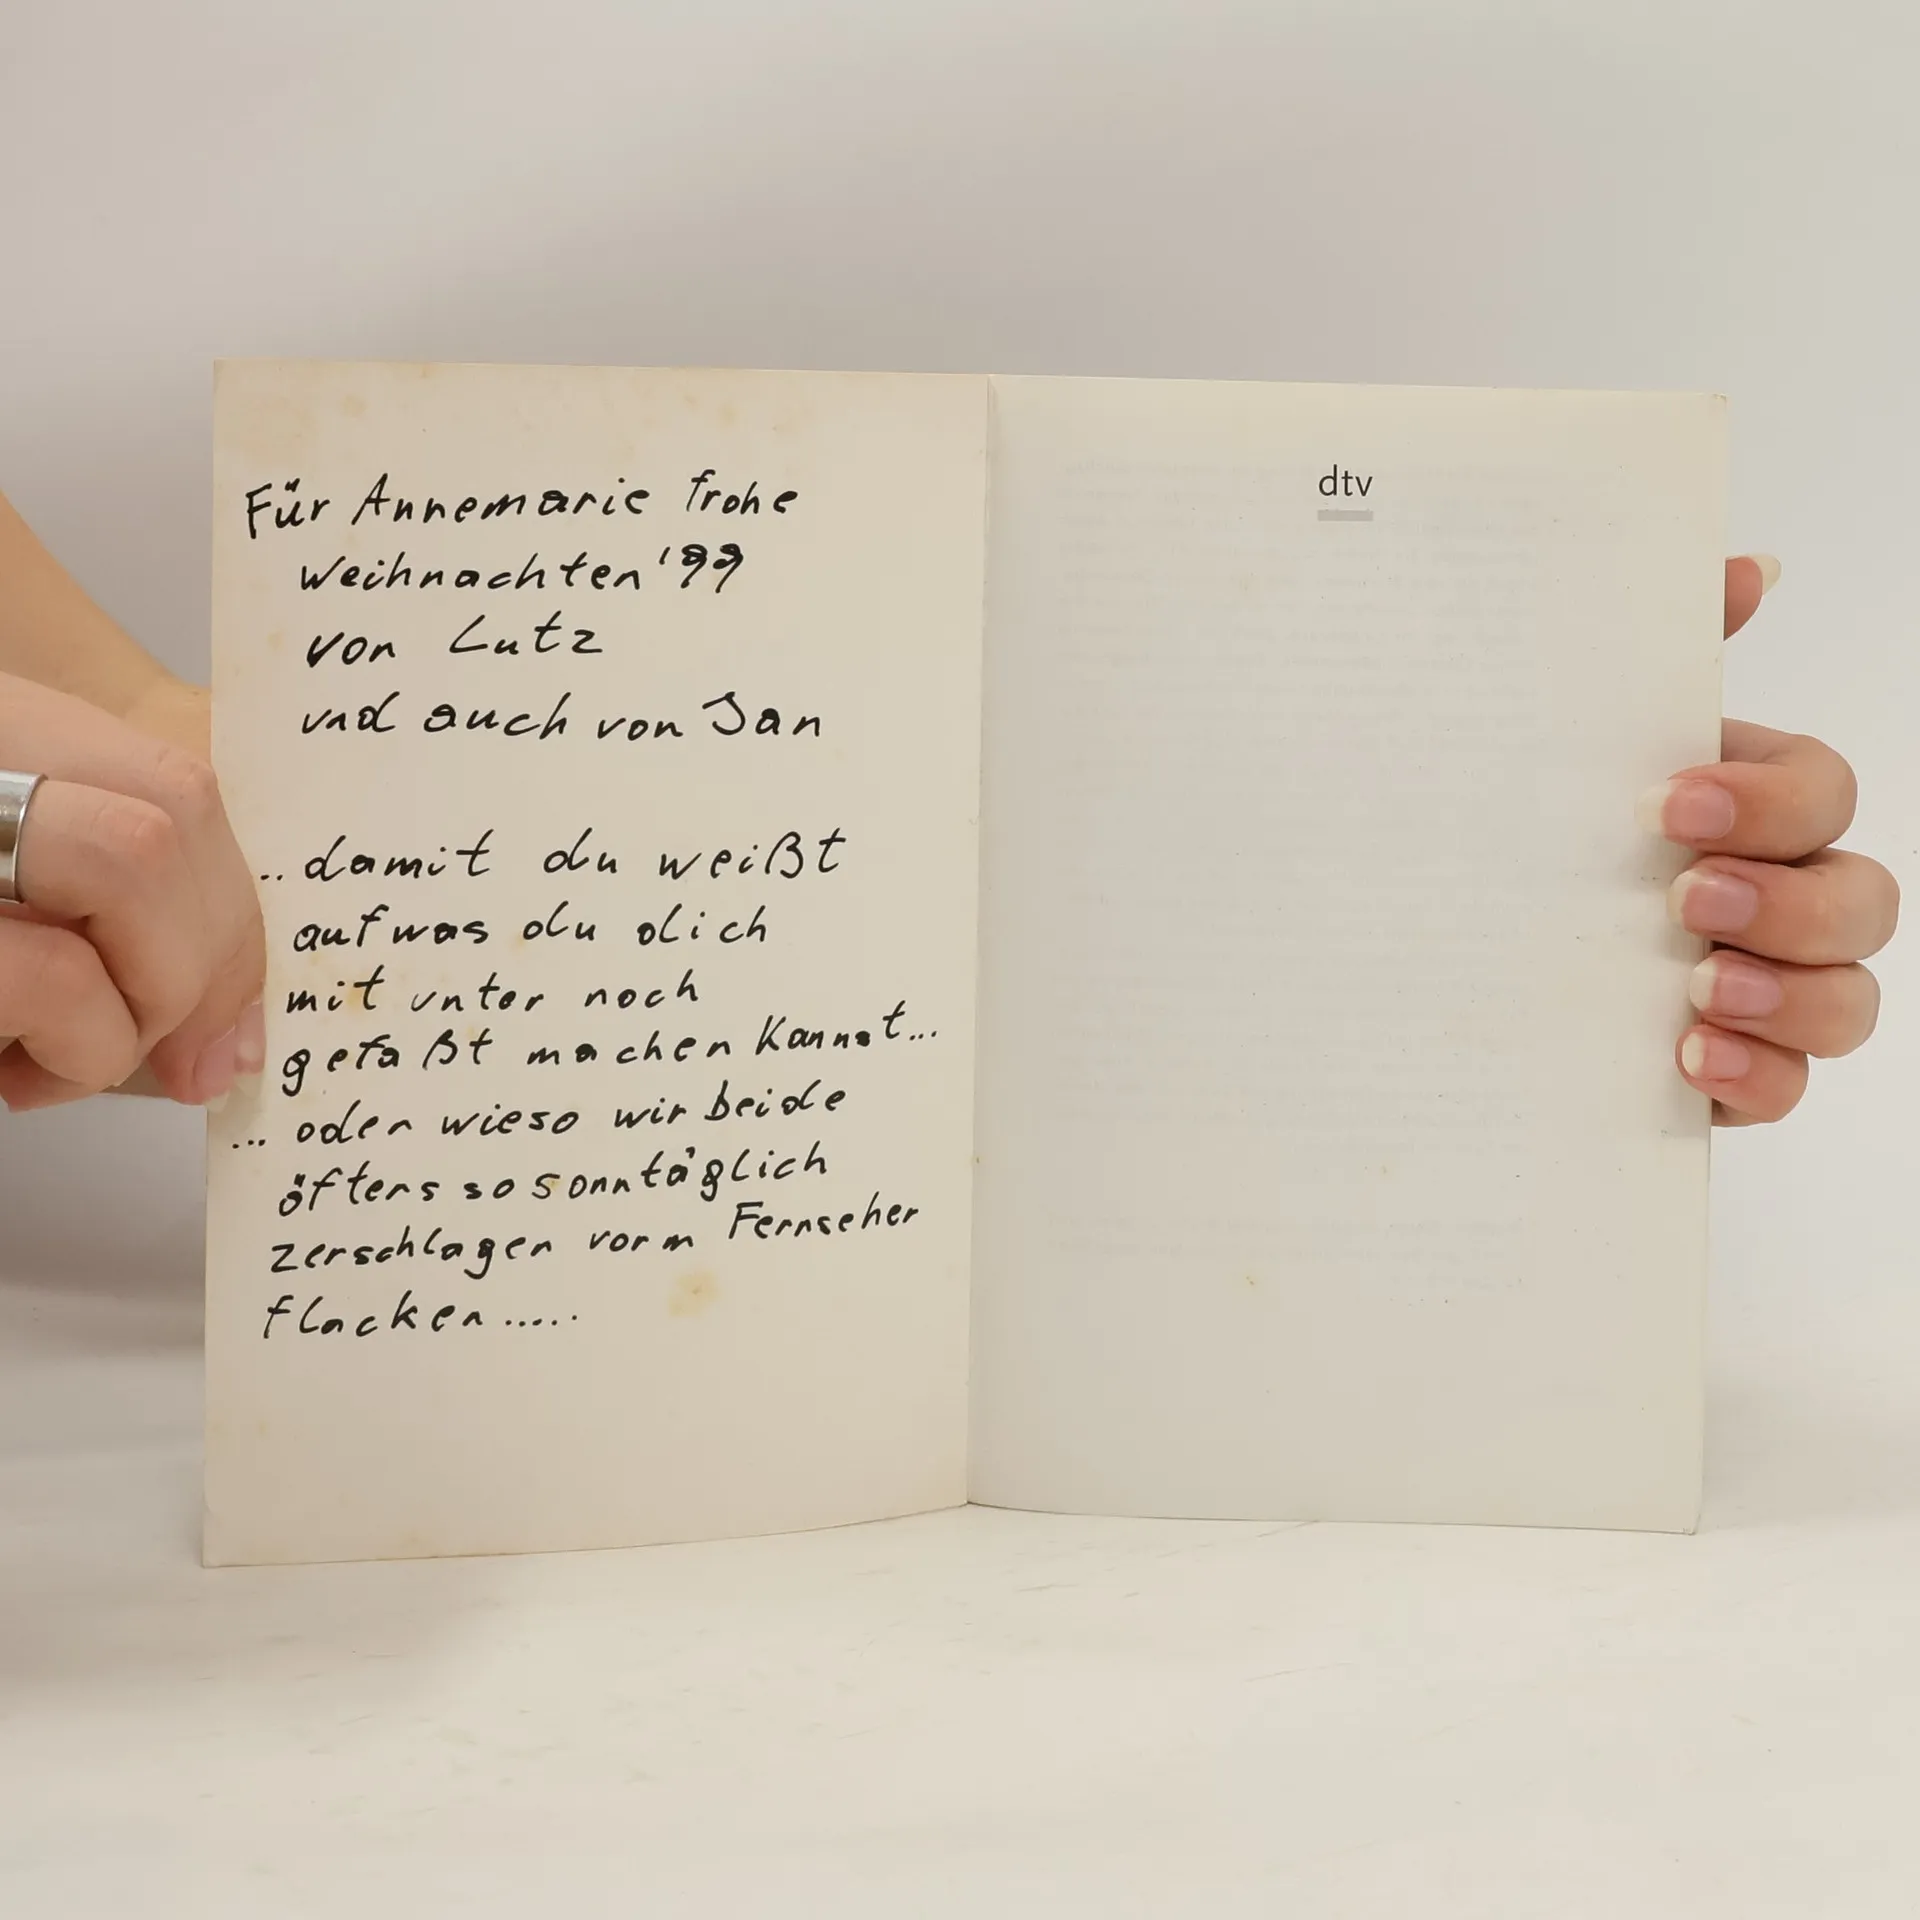 Für Annemarie frohe
Weihnachten '99
von Lutz
und auch von Jan
.. damit du weißt
auf was du dich
mit unter noch
gefaßt machen Kannst...
... oder wieso wir beide
öfters so sonntäglich
zerschlagen vorm Fernseher
flacken.....
dtv